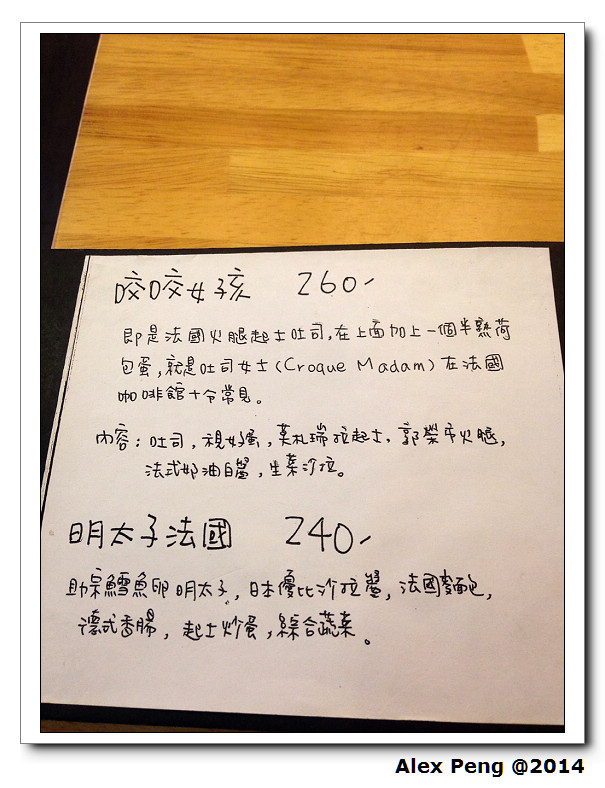 咬咬女孩 260-
即是法國火腿起士吐司,在上面加上一個半熟荷
包蛋,就是吐司女士(Croque Madam)在法國
咖啡館十分常見。
內容:吐司,視好蛋,莫札瑞拉起士,郭榮市火腿,
法式奶油白醬,生菜沙拉。
明太子法國 240-
助宗鱈魚卵明太子,日本優比沙拉醬,法國麵包,
德式香腸,起士炒蛋,綜合蔬菜。
Alex Peng @2014